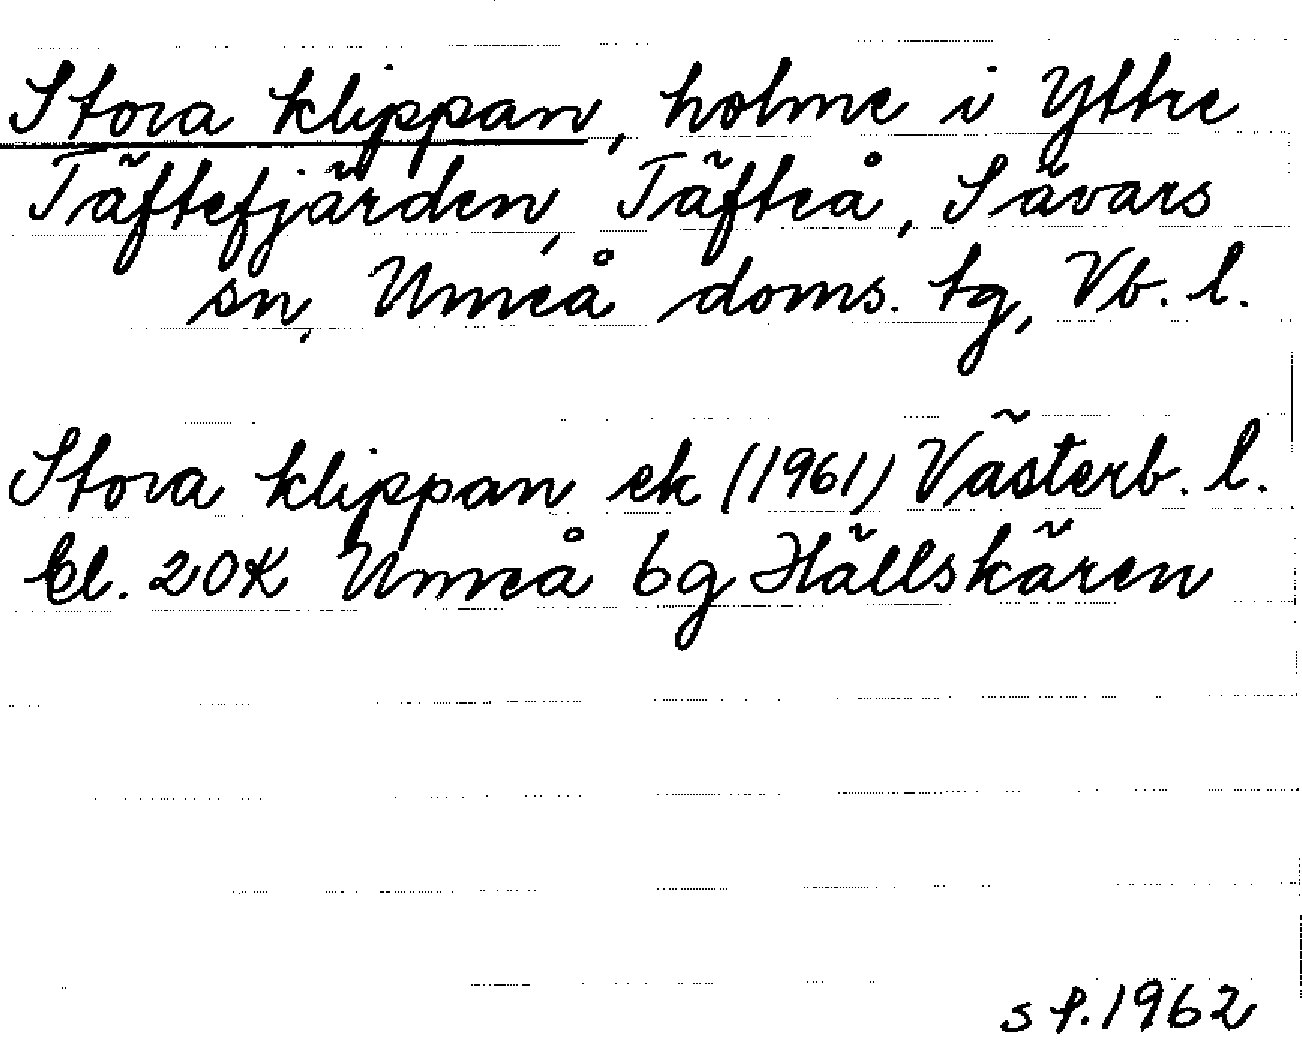 Stora klippan, holme i Yttre
Täftefjärden, Täfteå, Sävars
sn, Umeå doms. tg, Vb. l.
Stora klippan ek (1961) Västerb. l.
bl. 20K Umeå 6g Hällskären
s f. 1962